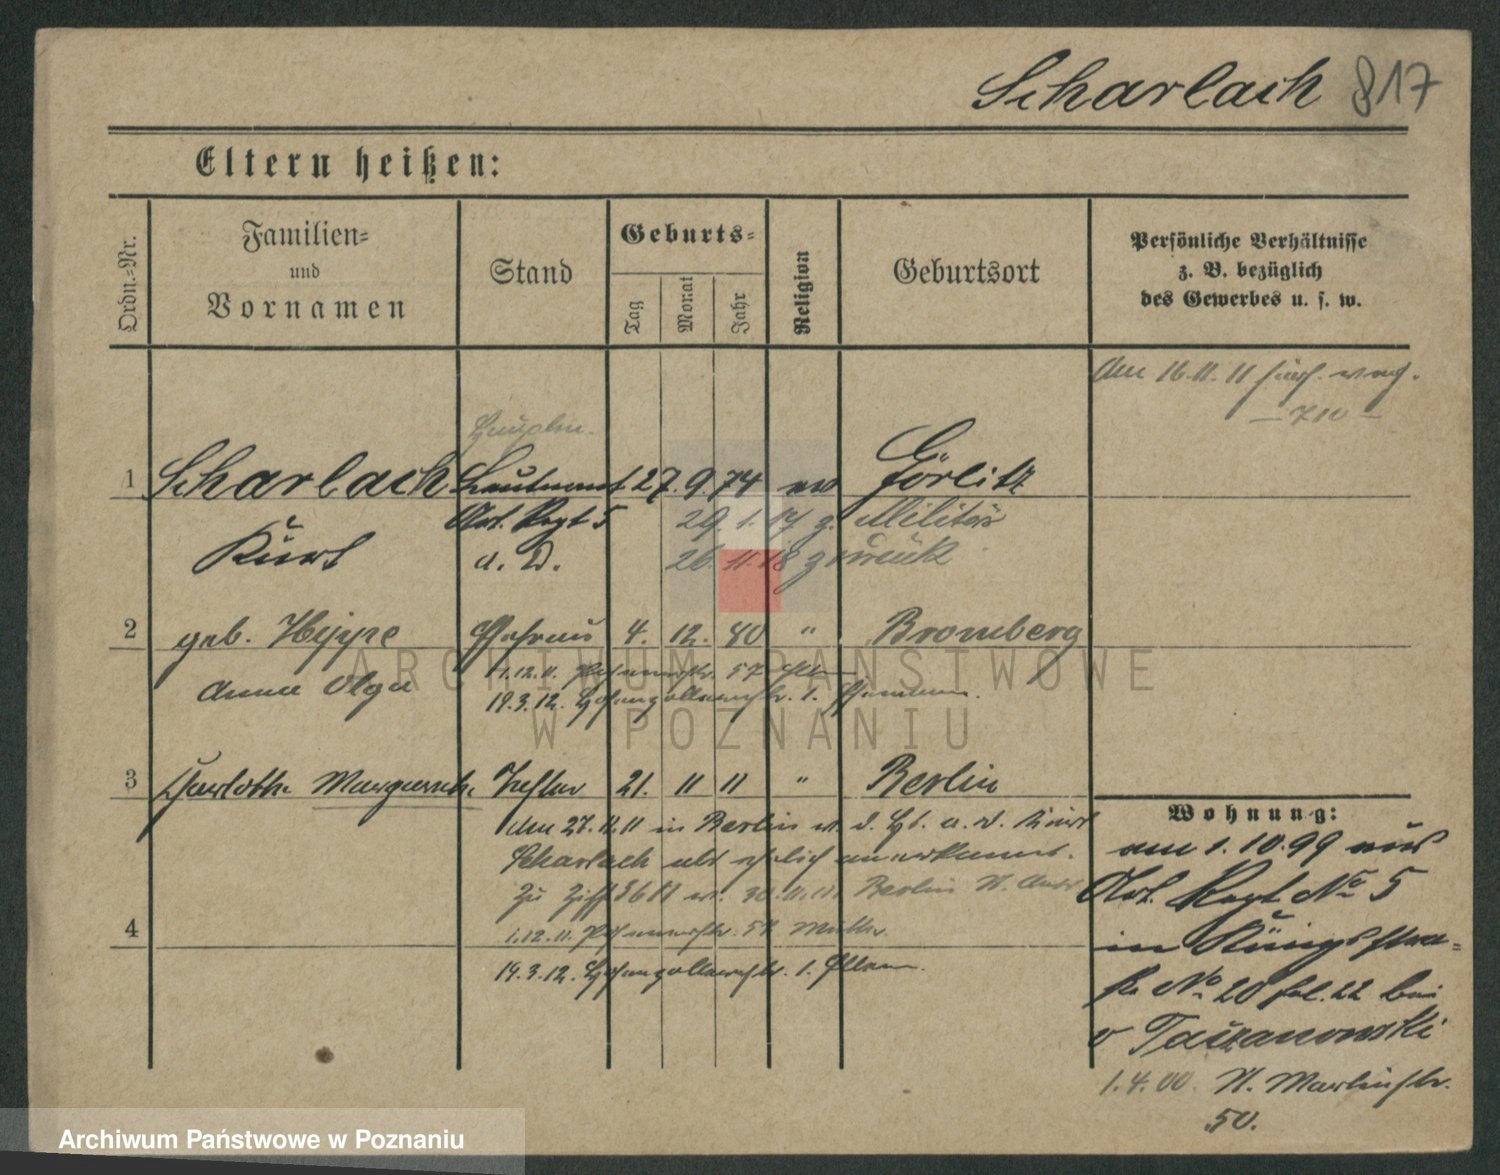 Scharlach 817
Eltern heißen:
Ordn.-Nr.
Familien-
und
Vornamen
Stand
Geburts-
Tag
Monat
Jahr
Religion
Geburtsort
Persönliche Verhältnisse
z. B. bezüglich
des Gewerbes u. s. w.
Am 16.11.11
— 710 —
Hauptm.
1 Scharlach Leutnant 27. 9. 74 ev Görlitz
Art. Regt 5 29. 1. 17 z. Militär
Kurt a. D. 26. 11. 18 zurück
2 geb. Heppe Ehefrau 4. 12. 80 " Bromberg
Anna Olga 1.12.11. 57
19.3.12. 1.
ARCHIWUM PAŃSTWOWE
W POZNANIU
3 Charlotte Margarete Tochter 21. 11 11 " Berlin
Wohnung:
den 27.12.11 in Berlin v. d. a. D. Kurt
Scharlach als ehelich anerkannt.
zu 30.11.11 Berlin
4 1.12.11. 57 Mutter
19.3.12. 1. Eltern
am 1.10.99 aus
Art. Regt No 5
in Königstra-
ße No 20 bei
v Taczanowski
1.4.00. N. Martinstr.
50.
Archiwum Państwowe w Poznaniu